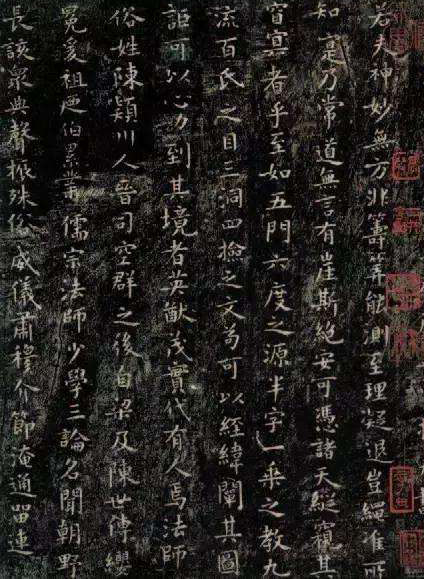 若夫神妙無方非籌筭能測至理凝退豈繩准所
知寔乃常道無言有崖斯絕安可憑諸天縱窺其
窅冥者乎至如五門六度之源半字一乘之教九
流百氏之目三洞四撿之文苟可以經緯闡其圖
詎可以心力到其境者英猷茂實代有人焉法師
俗姓陳潁川人晉司空群之後自梁及陳世傳纓
冕爰祖迺伯累葉儒宗法師少學三論名聞朝野
長該眾典聲振殊俗威儀肅穆介節淹通留連